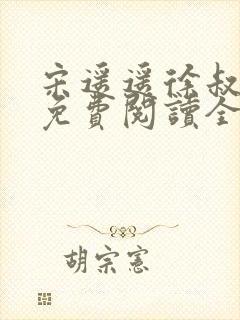 宋遥遥徐叔
免費閱讀全
胡宗憲